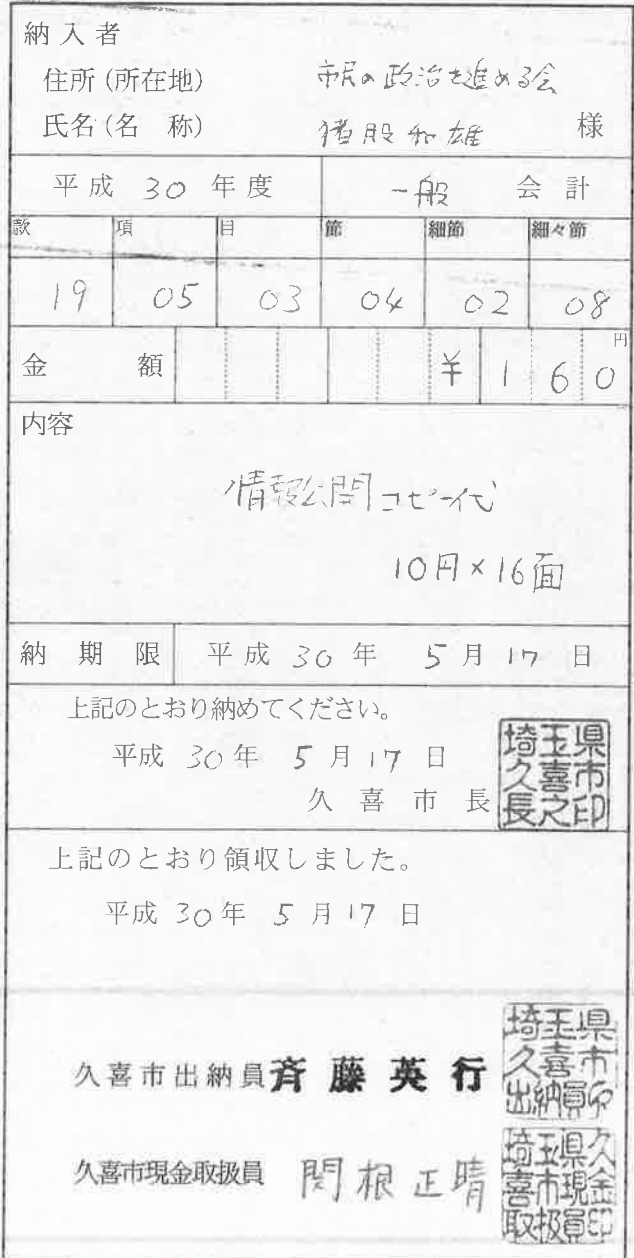 納入者
住所(所在地) 市民の政治を進める会
氏名(名 称) 猪股和雄 様
平成 30 年度 一般 会計
款 項 目 節 細節 細々節
19 05 03 04 02 08
金 額 ¥160 円
内容
情報公開コピー代
10円×16面
納期限 平成 30 年 5 月 17 日
上記のとおり納めてください。
平成 30 年 5 月 17 日
久喜市長
埼玉県
久喜市
長之印
上記のとおり領収しました。
平成 30 年 5 月 17 日
久喜市出納員 斉藤英行
埼玉県
久喜市
出納員印
久喜市現金取扱員 関根正晴
埼玉県久
喜市現金
取扱員印